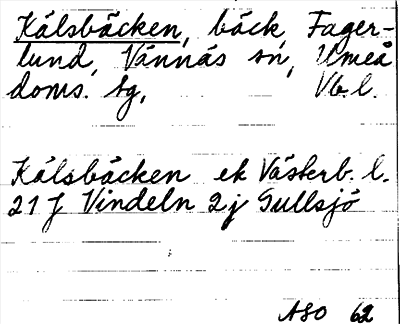 Kålsbäcken, bäck, Fager-
lund, Vännäs sn, Umeå
doms. tg, Vb. l.
Kålsbäcken ek Västerb. l.
21 J Vindeln 2j Gullsjö
ASO 62